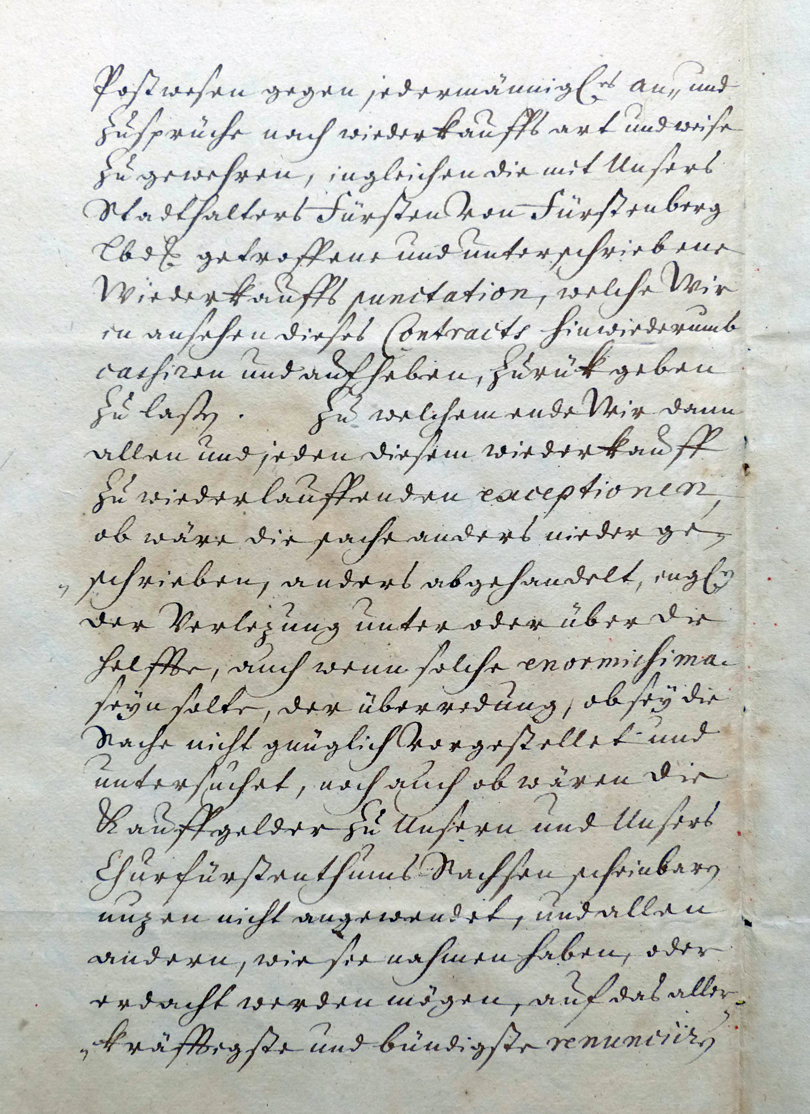 Postwesen gegen jedermännigl. an- und
Zusprüche nach wiederkauffs art und weise
zu gewehren, ingleichen die mit Unsers
Stadthalters Fürsten von Fürstenberg
Lbd. getroffene und unterschriebene
Wiederkauffs punctation, welche Wir
in ansehen dieses Contracts hinwiederumb
cassiren und aufheben, zurük geben
zu lassen. Zu welchem ende Wir dann
allen und jeden diesem wiederkauff
zu wiederlauffenden exceptionen,
ob wäre die sache anders nieder ge-
schrieben, anders abgehandelt, ingl.
der Verlezung unter oder über die
helffte, auch wenn solche enormissima
seyn solte, der überredung, ob sey die
Sache nicht gnüglich vorgestellet und
untersuchet, noch auch ob wären die
Kauffgelder zu Unsern und Unsers
Churfürstenthums Sachsen scheinbaren
nuzen nicht angewendet, und allen
andern, wie sie nahmen haben, oder
erdacht werden mögen, auf das aller-
kräfftigste und bündigste renunciiren